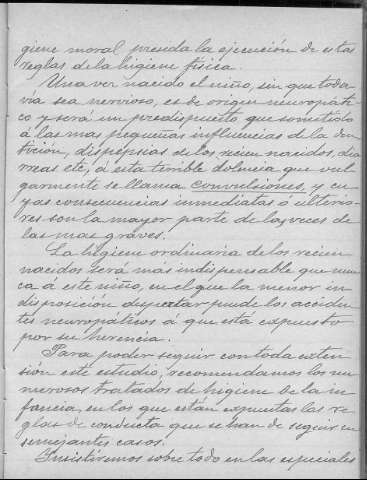 giene moral presida la ejecución de estas
reglas de la higiene física.
Una vez nacido el niño, sin que toda
vía sea nervioso, es de origen neuropáti
co y será un predispuesto que sometido
á las mas pequeñas influencias de la den
tición, dispepsias de los recien nacidos, dia
rreas etc, á esta terrible dolencia que vul
garmente se llama convulsiones, y cu
yas consecuencias inmediatas ó ulterio
res son la mayor parte de las veces de
las mas graves.
La higiene ordinaria de los recien
nacidos será mas indispensable que nun
ca á este niño, en el que la menor in
disposición despertar puede los acciden
tes neuropáticos á que está expuesto
por su herencia.
Para poder seguir con toda exten
sión este estudio, recomendamos los nu
merosos tratados de higiene de la in
fancia, en los que están expuestas las re
glas de conducta que se han de seguir en
semejantes casos.
Insistiremos sobre todo en las especiales